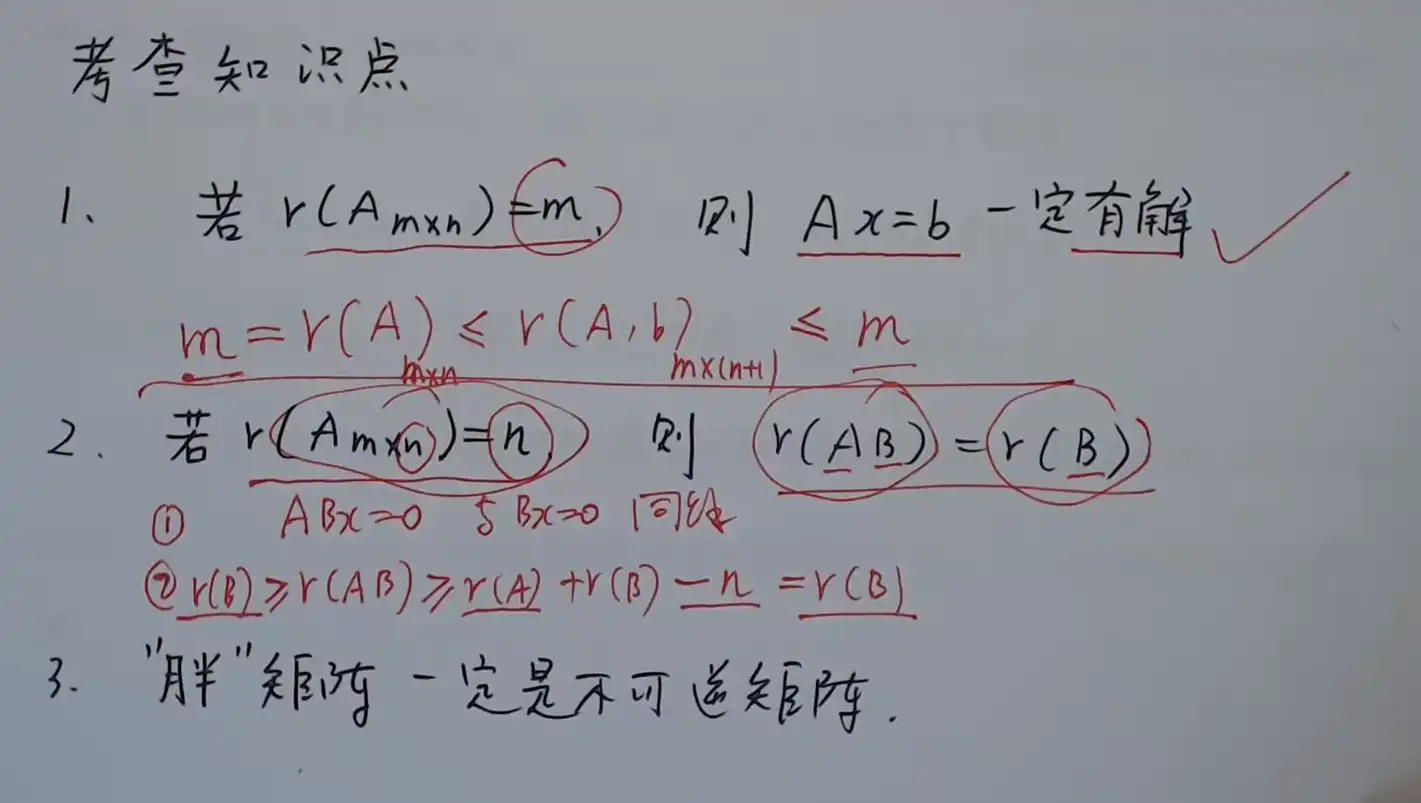 考查知识点
1、 若 r(Aₘₓₙ)=m, 则 Ax=b 一定有解 ✓
m = r(A)ₘₓₙ ≤ r(A,b)ₘₓ₍ₙ₊₁₎ ≤ m
2. 若 r(Aₘₓₙ)=n, 则 r(AB) = r(B)
① ABx=0 与 Bx=0 同解
② r(B) ≥ r(AB) ≥ r(A) + r(B) − n = r(B)
3. "胖"矩阵一定是不可逆矩阵.